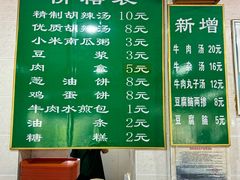 价格表
精制胡辣汤 10元
优质胡辣汤 8元
小米南瓜粥 3元
豆浆 3元
肉盒 5元
葱油饼 8元
鸡蛋饼 8元
牛肉水煎包 1元
油条 2元
糖糕 2元
新增
牛肉汤 20元
牛杂汤 15元
牛肉丸子汤 12元
豆腐脑两掺 8元
豆腐脑 5元